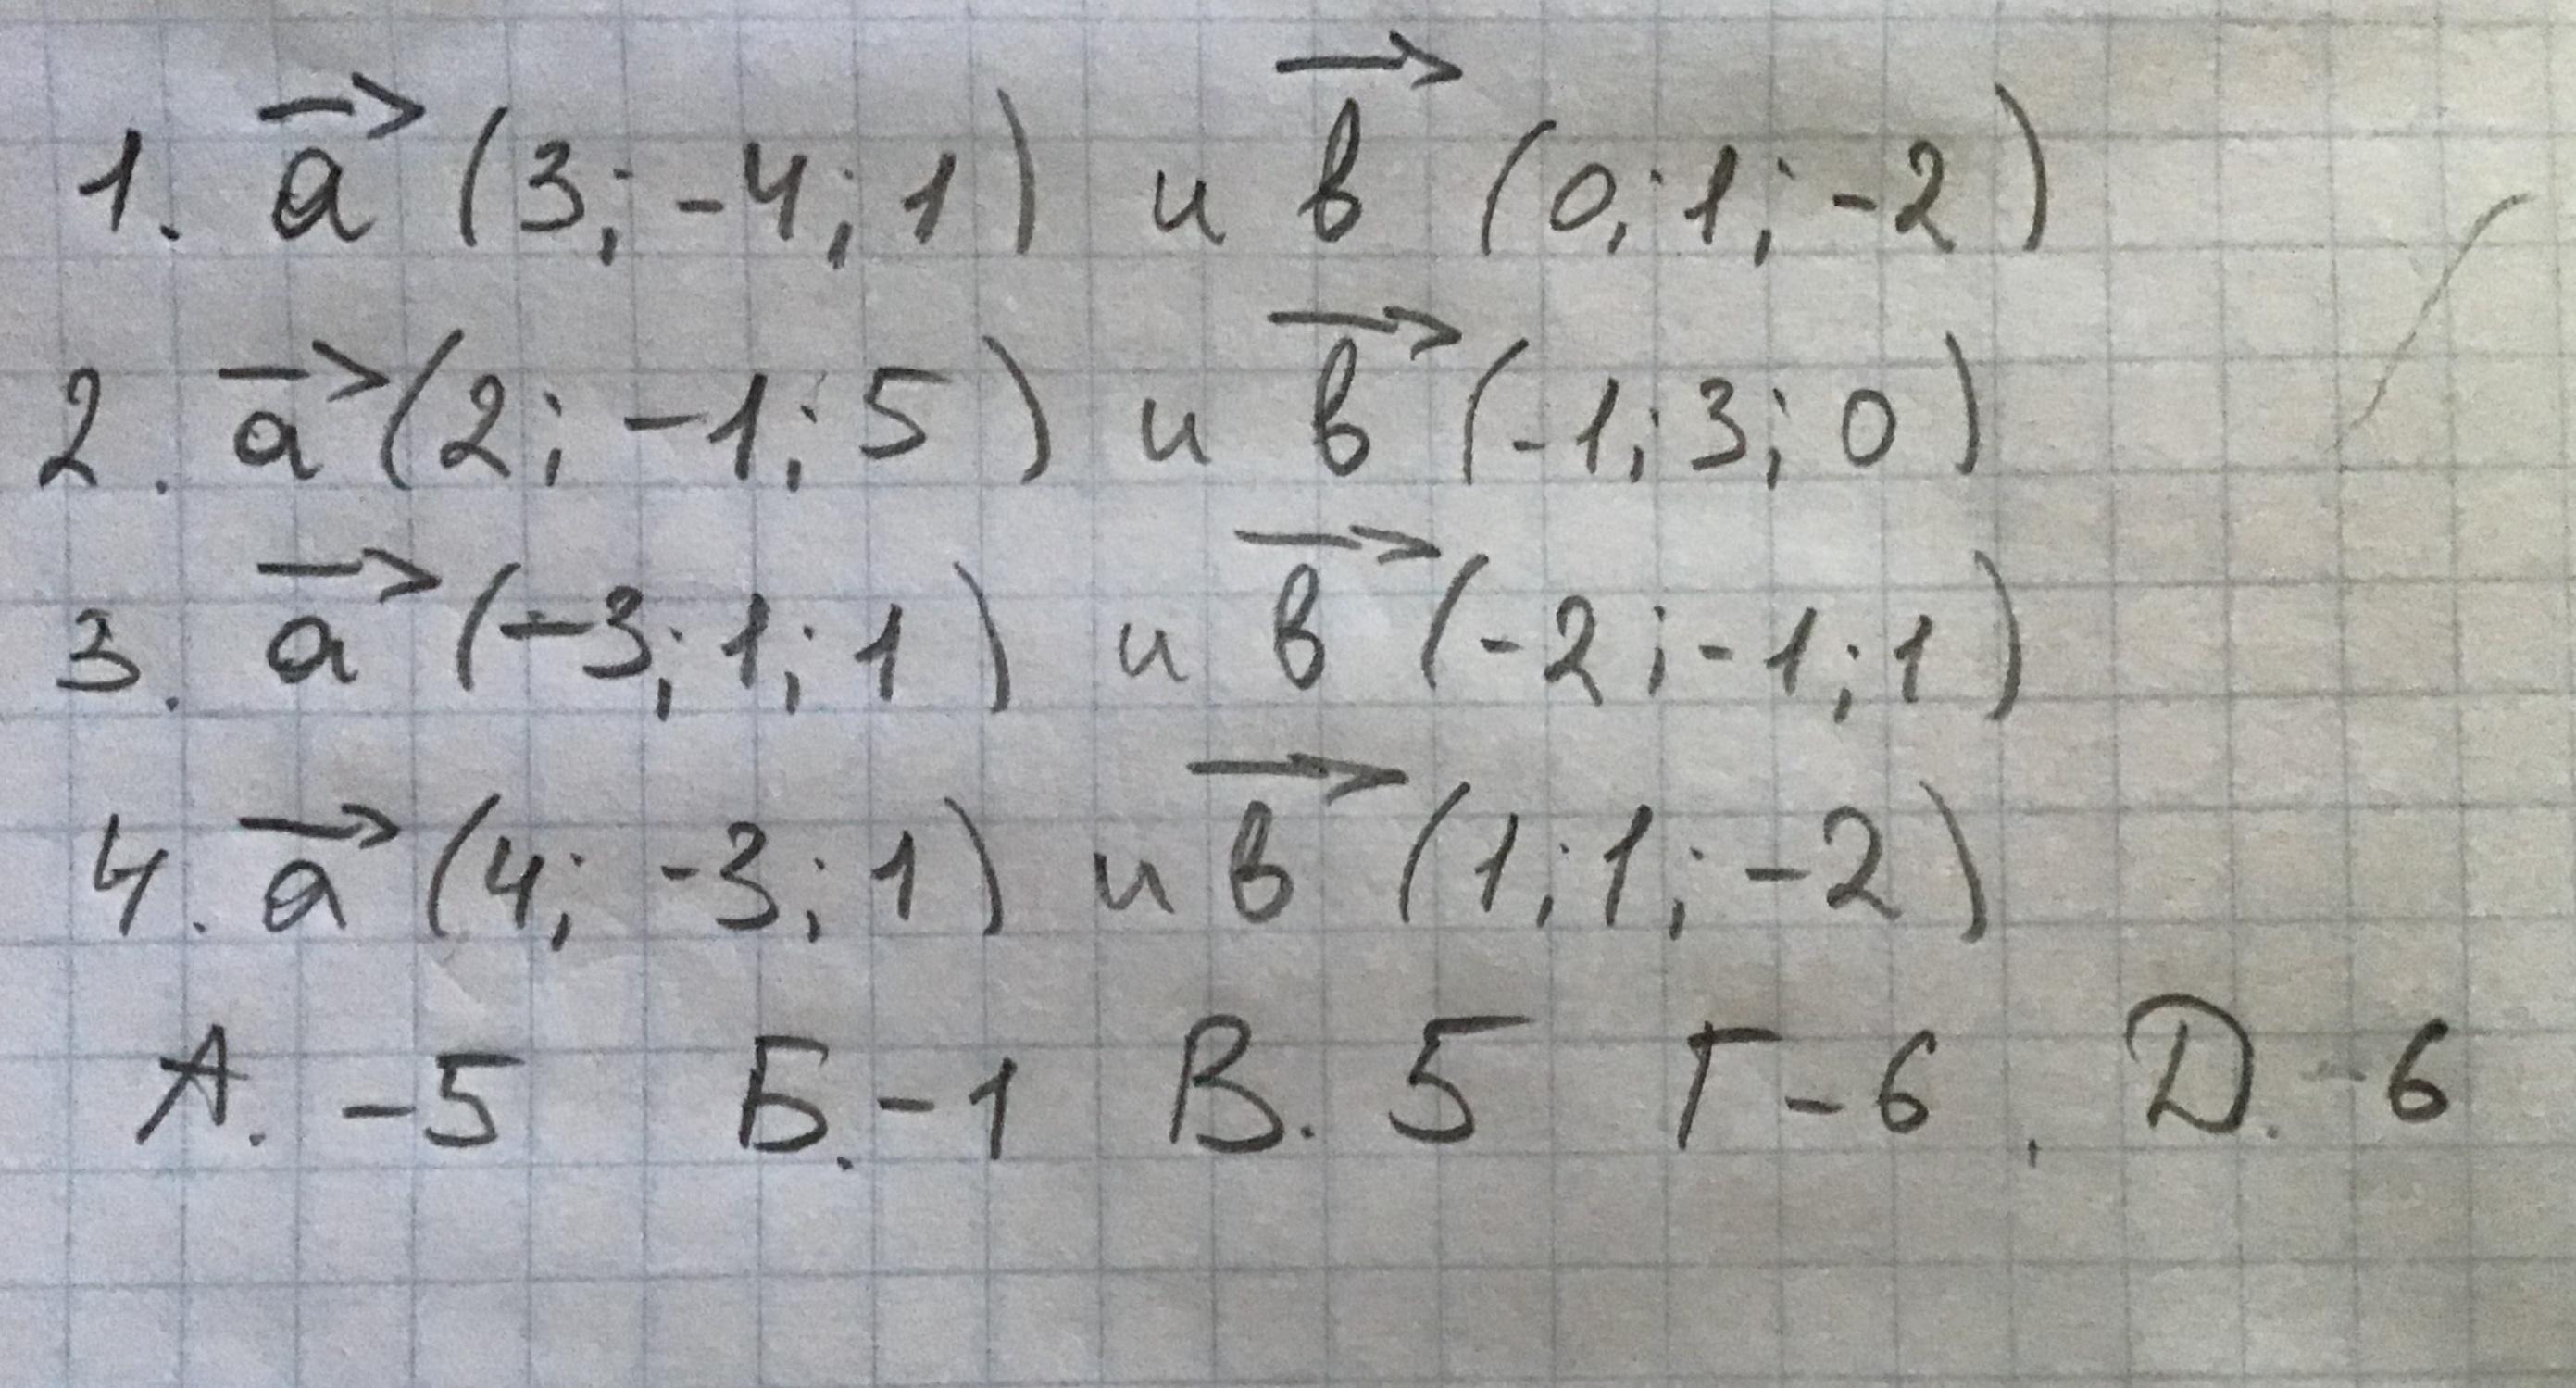 1. a (3; -4; 1) и в (0; 1; -2)
2. a (2; -1; 5) и в (-1; 3; 0)
3. a (-3; 1; 1) и в (-2; -1; 1)
4. a (4; -3; 1) и в (1; 1; -2)
А. -5 Б. -1 В. 5 Г -6. D. -6